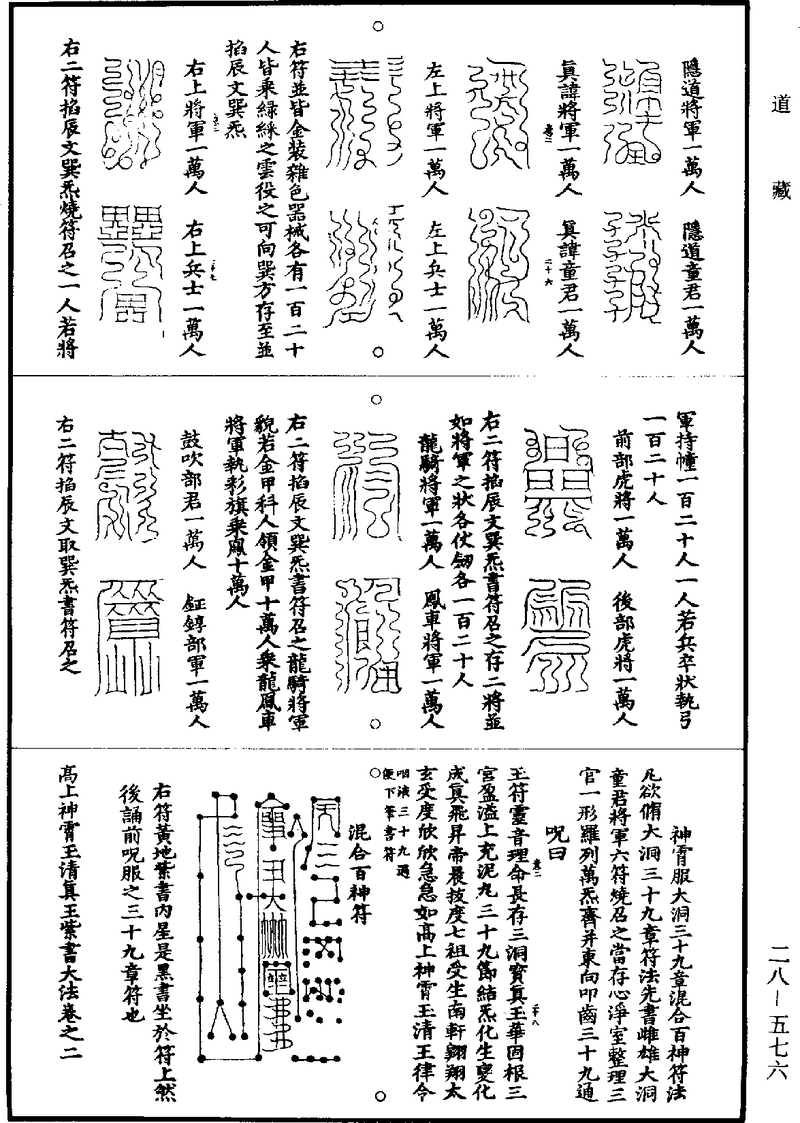 道藏
隱道將軍一萬人　隱道童君一萬人
眞諱將軍一萬人　眞諱童君一萬人
卷二　二十六
左上將軍一萬人　左上兵士一萬人
右符並皆金裝雜色器械各有一百二十
人皆乘綠綵之雲役之可向巽方存至並
掐辰文巽炁
右上將軍一萬人　右上兵士一萬人
卷二　二十七
右二符掐辰文巽炁燒符召之一人若將
軍持幢一百二十人一人若兵卒狀執弓
一百二十人
前部虎將一萬人　後部虎將一萬人
右二符掐辰文巽炁書符召之存二將並
如將軍之狀各仗劒各一百二十人
龍騎將軍一萬人　鳳車將軍一萬人
右二符掐辰文巽炁書符召之龍騎將軍
貌若金甲科人領金甲十萬人乘龍鳳車
將軍執彩旗乘鳳十萬人
鼓吹部君一萬人　鉦錞部軍一萬人
右二符掐辰文取巽炁書符召之
神霄服大洞三十九章混合百神符法
凡欲脩大洞三十九章符法先書雌雄大洞
童君將軍六符燒召之當存心淨室整理三
官一形羅列萬炁齊并東向叩齒三十九通
呪曰
卷二　二十八
玉符靈音理命長存三洞寶真玉華固根三
宮盈溢上充泥丸三十九節結炁化生變化
成真飛昇帝晨拔度七祖受生南軒翱翔太
玄受度欣欣急急如高上神霄玉清王律令
咽液三十九過
便下筆書符
混合百神符
右符黃地紫書內星是黑書坐於符上然
後誦前呪服之三十九章符也
高上神霄玉清真王紫書大法卷之二
二八—五七六